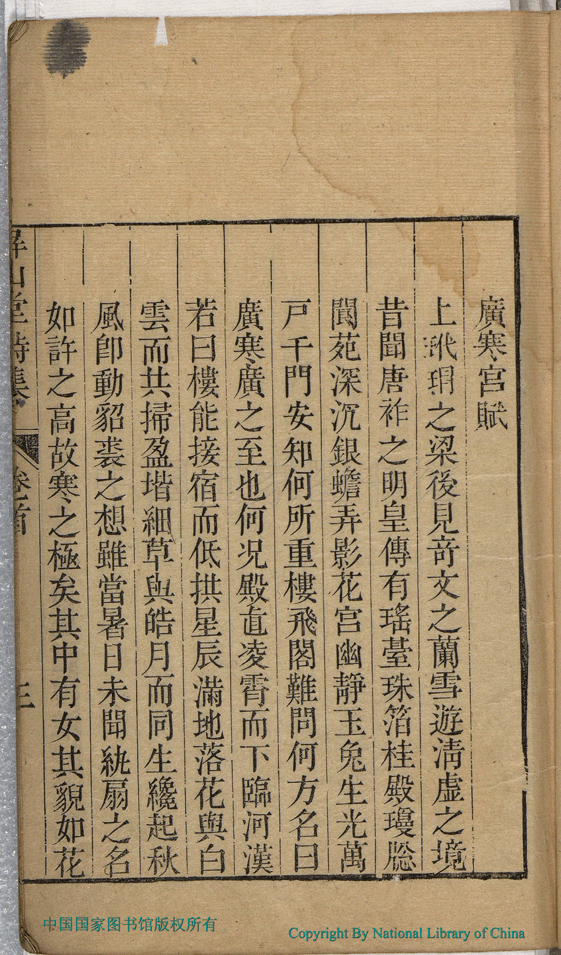 廣寒宮賦
上玳瑁之梁後見竒文之蘭雪遊淸虛之境
昔聞唐祚之明皇傳有瑤臺珠箔桂殿瓊牕
閬苑深沉銀蟾弄影花宮幽靜玉兔生光萬
戸千門安知何所重樓飛閣難問何方名曰
廣寒廣之至也何况殿直凌霄而下臨河漢
若曰樓能接宿而低拱星辰滿地落花與白
雲而共掃盈堦細草與皓月而同生纔起秋
風卽動貂裘之想雖當暑日未聞紈扇之名
如許之高故寒之極矣其中有女其貌如花
屏山堂詩集
卷首
三
中国国家图书馆版权所有
Copyright By National Library of China